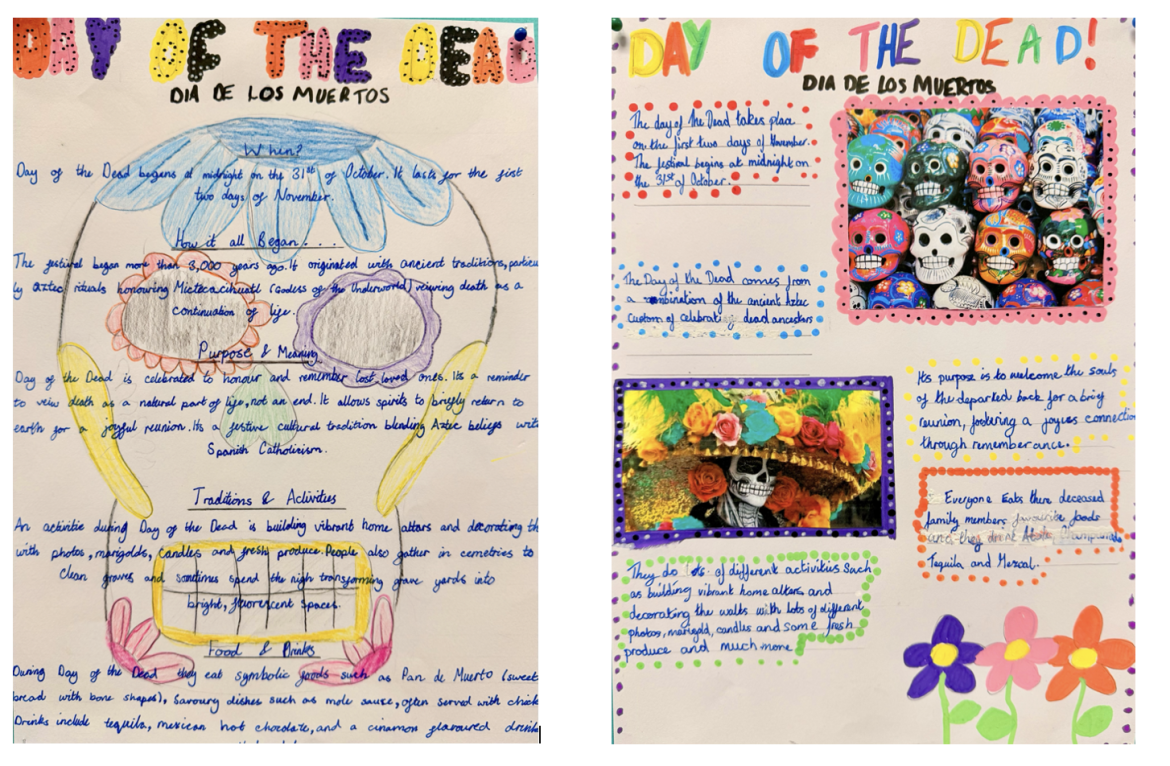 DAY OF THE DEAD
DIA DE LOS MUERTOS
When?
Day of the Dead begins at midnight on the 31st of October. It lasts for the first
two days of November.
How it all Began....
The festival began more than 3,000 years ago. It originated with ancient traditions, particu
ly aztec rituals honouring Mictecacihuatl (Godess of the Underworld) veiwing death as a
continuation of life.
Purpose & Meaning
Day of the Dead is celebrated to honour and remember lost loved ones. Its a reminder
to veiw death as a natural part of life, not an end. It allows spirits to briefly return to
earth for a joyful reunion. Its a festive cultural tradition blending Aztec beliefs with
Spanish Catholicism.
Traditions & Activities
An activitie during Day of the Dead is building vibrant home altars and decorating th
with photos, marigolds, candles and fresh produce. People also gather in cemetries to
clean graves and sometimes spend the nigh transforming grave yards into
bright, fluorescent spaces.
Food & Drinks
During Day of the Dead they eat symbolic foods such as Pan de Muerto (sweet
bread with bone shapes), Savoury dishes such as mole sauce, often served with chick
Drinks include tequila, mexican hot chocolate, and a cinnamon flavoured drink
DAY OF THE DEAD!
DIA DE LOS MUERTOS
The day of the Dead takes place
on the first two days of November.
The festival begins at midnight on
the 31st of October.
The Day of the Dead comes from
a combination of the ancient Aztec
custom of celebrating dead ancestors
Its purpose is to welcome the souls
of the departed back for a brief
reunion, fostering a joyous connection
through rememberance.
Everyone Eats there deceased
family members favourite foods
and they drink
Tequila and Mezcal.
They do lots of different activities such
as building vibrant home altars and
decorating the walls with lots of different
photos, marigold, candles and some fresh
produce and much more